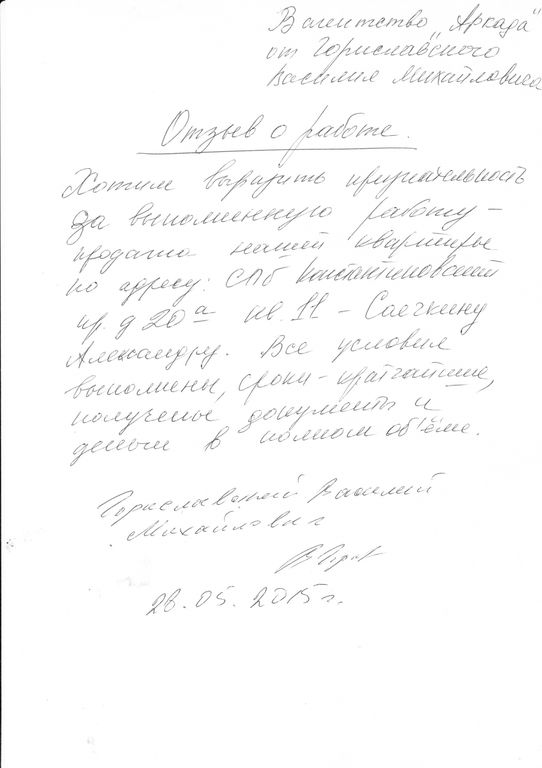 В агентство „Аркада"
от Гориславского
Василия Михайловича
Отзыв о работе.
Хотим выразить признательность
за выполненную работу –
продажа нашей квартиры
по адресу: СПб Константиновский
пр. д 20а кв. 11 – Саечкину
Александру. Все условия
выполнены, сроки – кратчайшие,
получены документы и
деньги в полном объёме.
Гориславский Василий
Михайлович
28.05.2015 г.